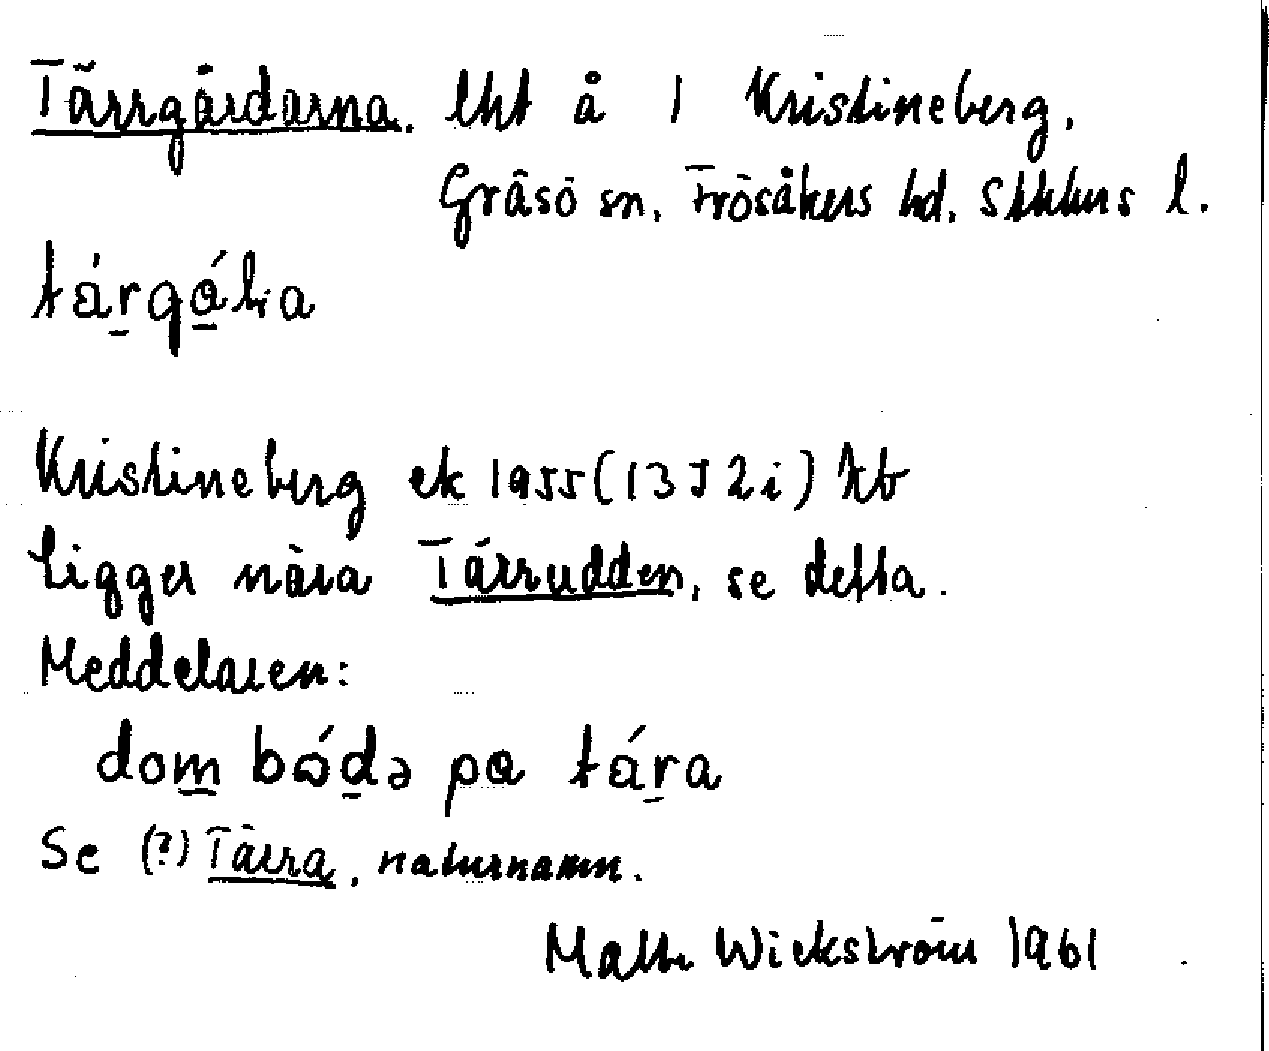 Tärrgårdarna. lht å 1 Kristineberg,
Gräsö sn, Frösåkers hd, Sthlms l.
Kristineberg ek 1955 (13 J 2 i)
ligger nära Tärrudden, se detta.
Meddelaren:
dom̲ bód̲ə pa tár̲a
Se (?) Tärra, naturnamn.
Malte Wickström 1961